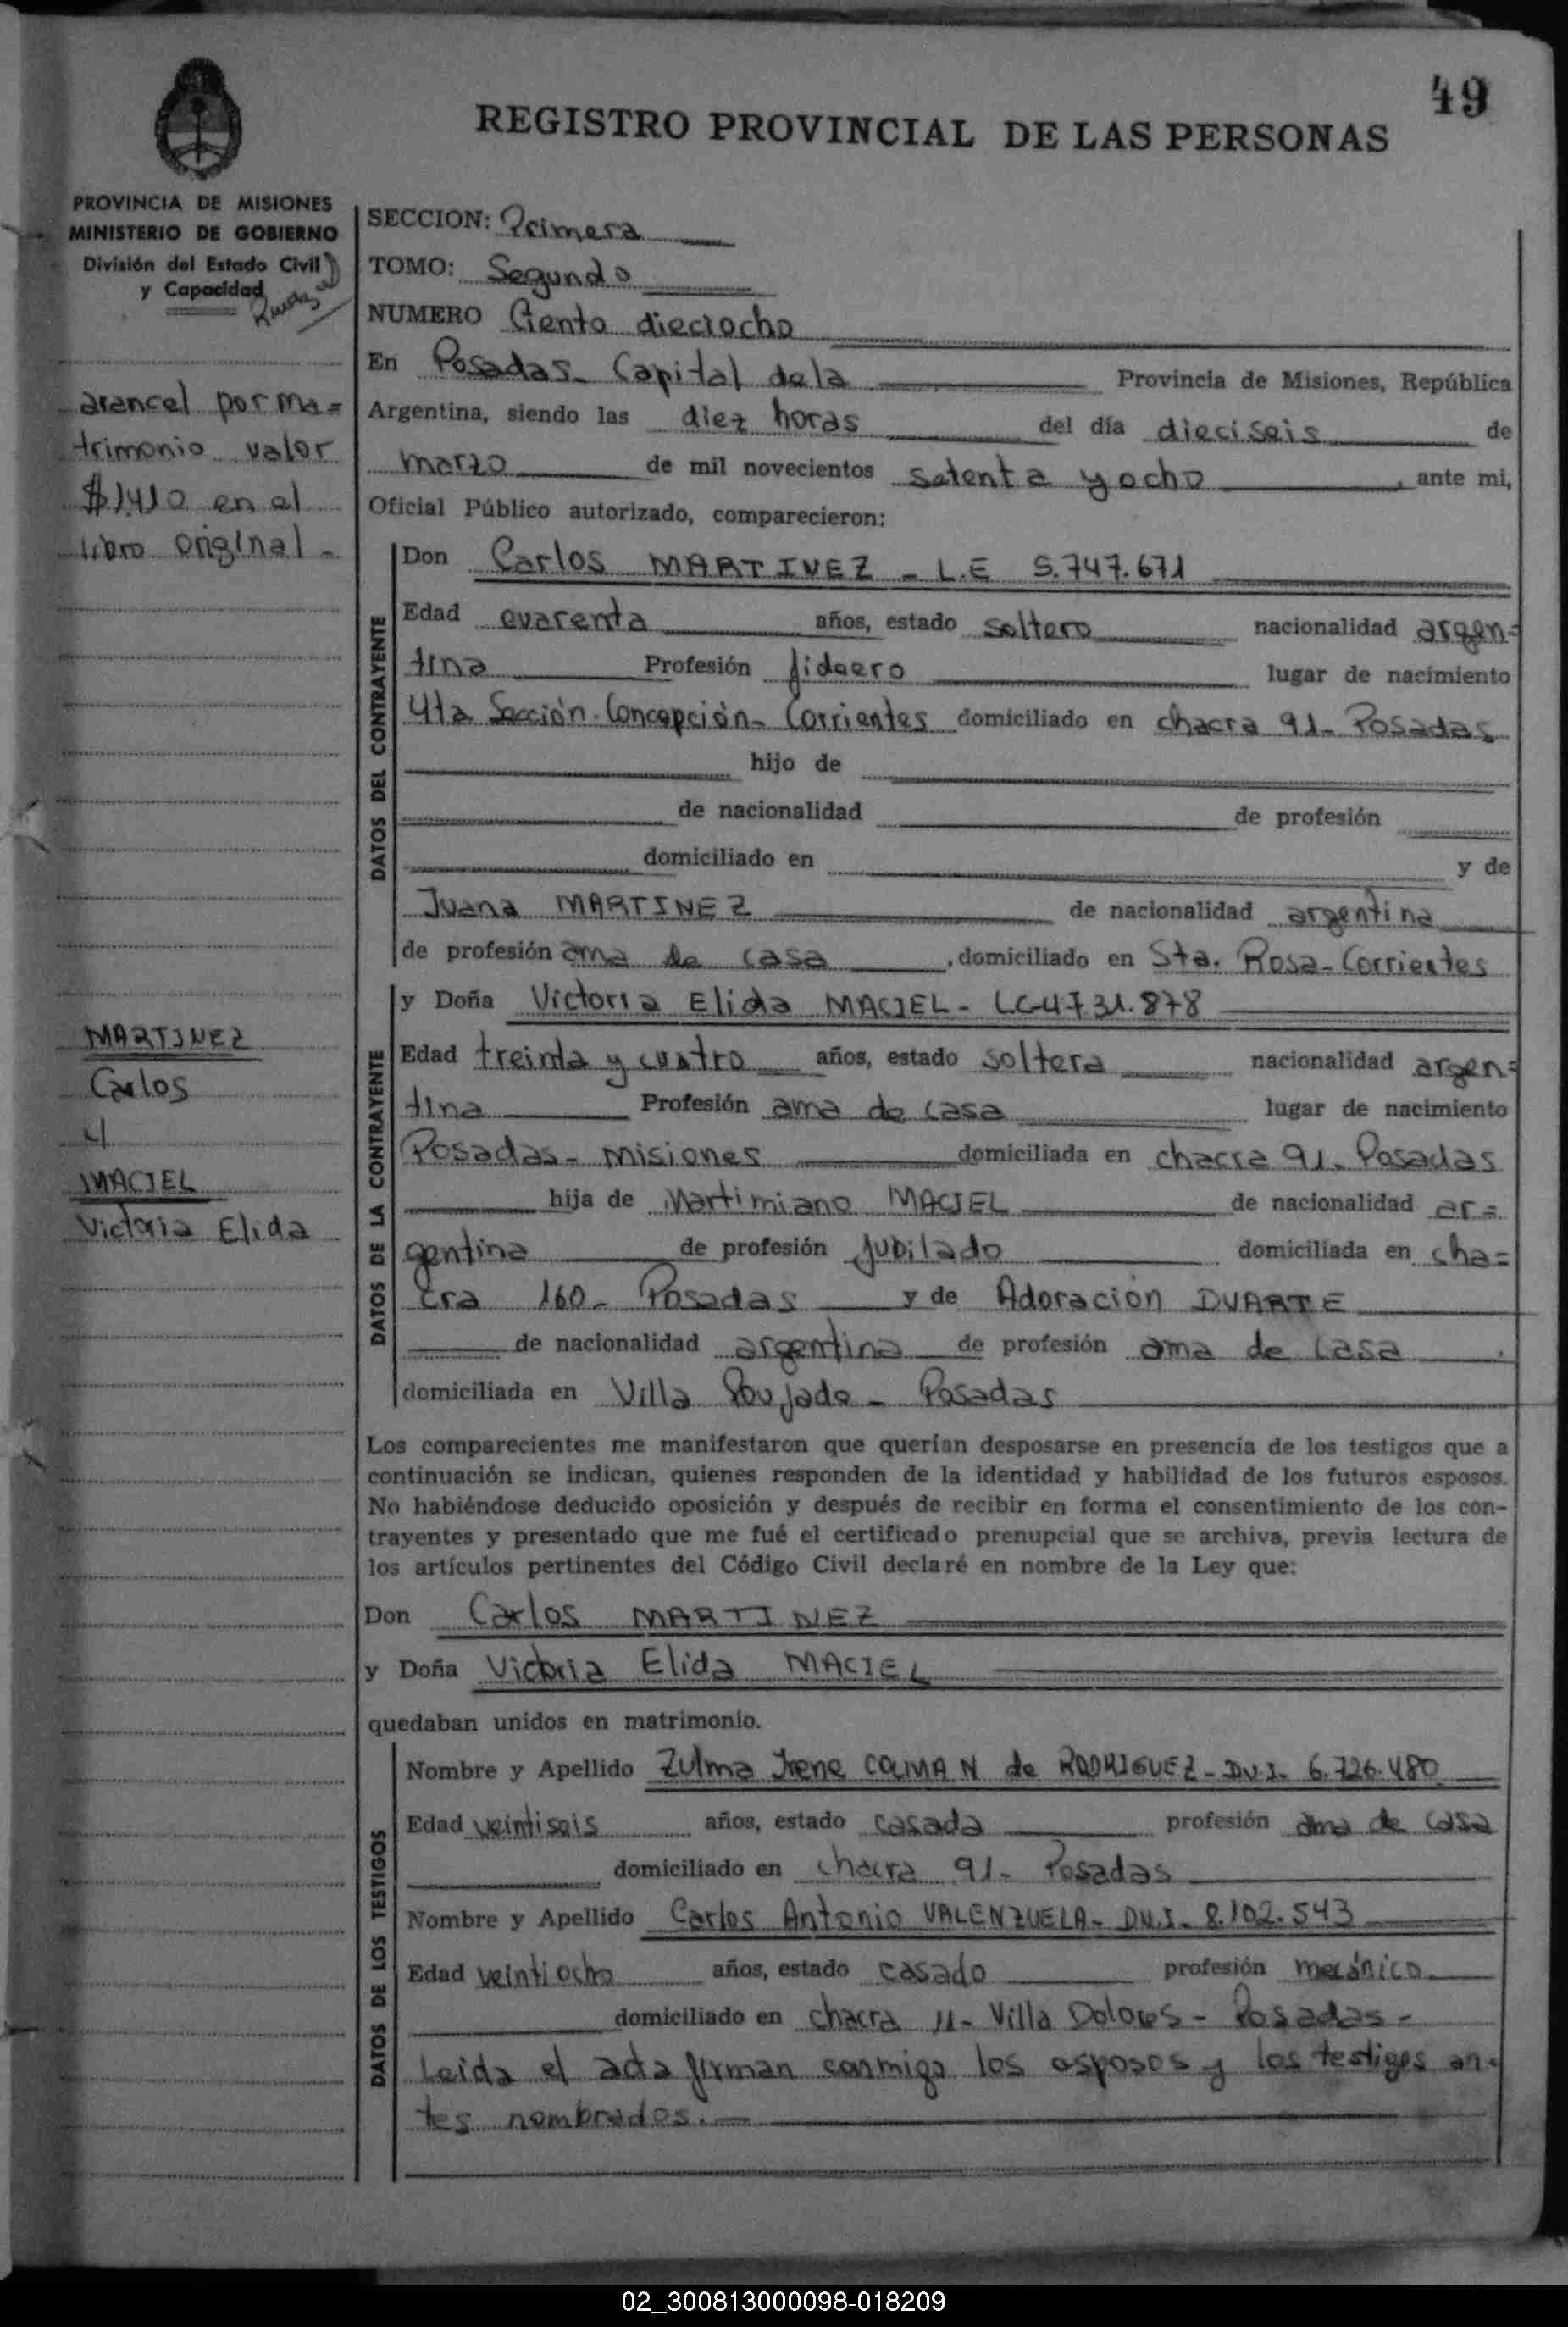 49
REGISTRO PROVINCIAL DE LAS PERSONAS
PROVINCIA DE MISIONES
MINISTERIO DE GOBIERNO
División del Estado Civil
y Capacidad
arancel por ma=
trimonio valor
$1410 en el
libro original -
MARTINEZ
Carlos
y
MACIEL
Victoria Elida
SECCION: Primera
TOMO: Segundo
NUMERO Ciento dieciocho
En Posadas- Capital de la Provincia de Misiones, República
Argentina, siendo las diez horas del día dieciseis de
marzo de mil novecientos setenta y ocho, ante mi,
Oficial Público autorizado, comparecieron:
DATOS DEL CONTRAYENTE
Don Carlos MARTINEZ - L.E 5.747.671
Edad cuarenta años, estado soltero nacionalidad argen=
tina Profesión fideero lugar de nacimiento
4ta Sección-Concepción- Corrientes domiciliado en chacra 91- Posadas
hijo de
de nacionalidad de profesión
domiciliado en y de
Juana MARTINEZ de nacionalidad argentina
de profesión ama de casa, domiciliado en Sta. Rosa-Corrientes
DATOS DE LA CONTRAYENTE
y Doña Victoria Elida MACIEL- LC4731.878
Edad treinta y cuatro años, estado soltera nacionalidad argen=
tina Profesión ama de casa lugar de nacimiento
Posadas- Misiones domiciliada en chacra 91- Posadas
hija de Martimiano MACIEL de nacionalidad ar=
gentina de profesión jubilado domiciliada en cha=
cra 160- Posadas y de Adoración DUARTE
de nacionalidad argentina de profesión ama de casa.
domiciliada en Villa Poujade- Posadas
Los comparecientes me manifestaron que querían desposarse en presencia de los testigos que a
continuación se indican, quienes responden de la identidad y habilidad de los futuros esposos.
No habiéndose deducido oposición y después de recibir en forma el consentimiento de los con-
trayentes y presentado que me fué el certificado prenupcial que se archiva, previa lectura de
los artículos pertinentes del Código Civil declaré en nombre de la Ley que:
Don Carlos MARTINEZ
y Doña Victoria Elida MACIEL
quedaban unidos en matrimonio.
DATOS DE LOS TESTIGOS
Nombre y Apellido Zulma Irene COLMAN de RODRIGUEZ- D.N.I- 6.726.480
Edad veintiseis años, estado casada profesión ama de casa
domiciliado en chacra 91- Posadas
Nombre y Apellido Carlos Antonio VALENZUELA- D.N.I- 8.102.543
Edad veintiocho años, estado casado profesión mecánico
domiciliado en chacra 11- Villa Dolores - Posadas-
Leida el acta firman conmigo los esposos y los testigos an-
tes nombrados.
02_300813000098-018209